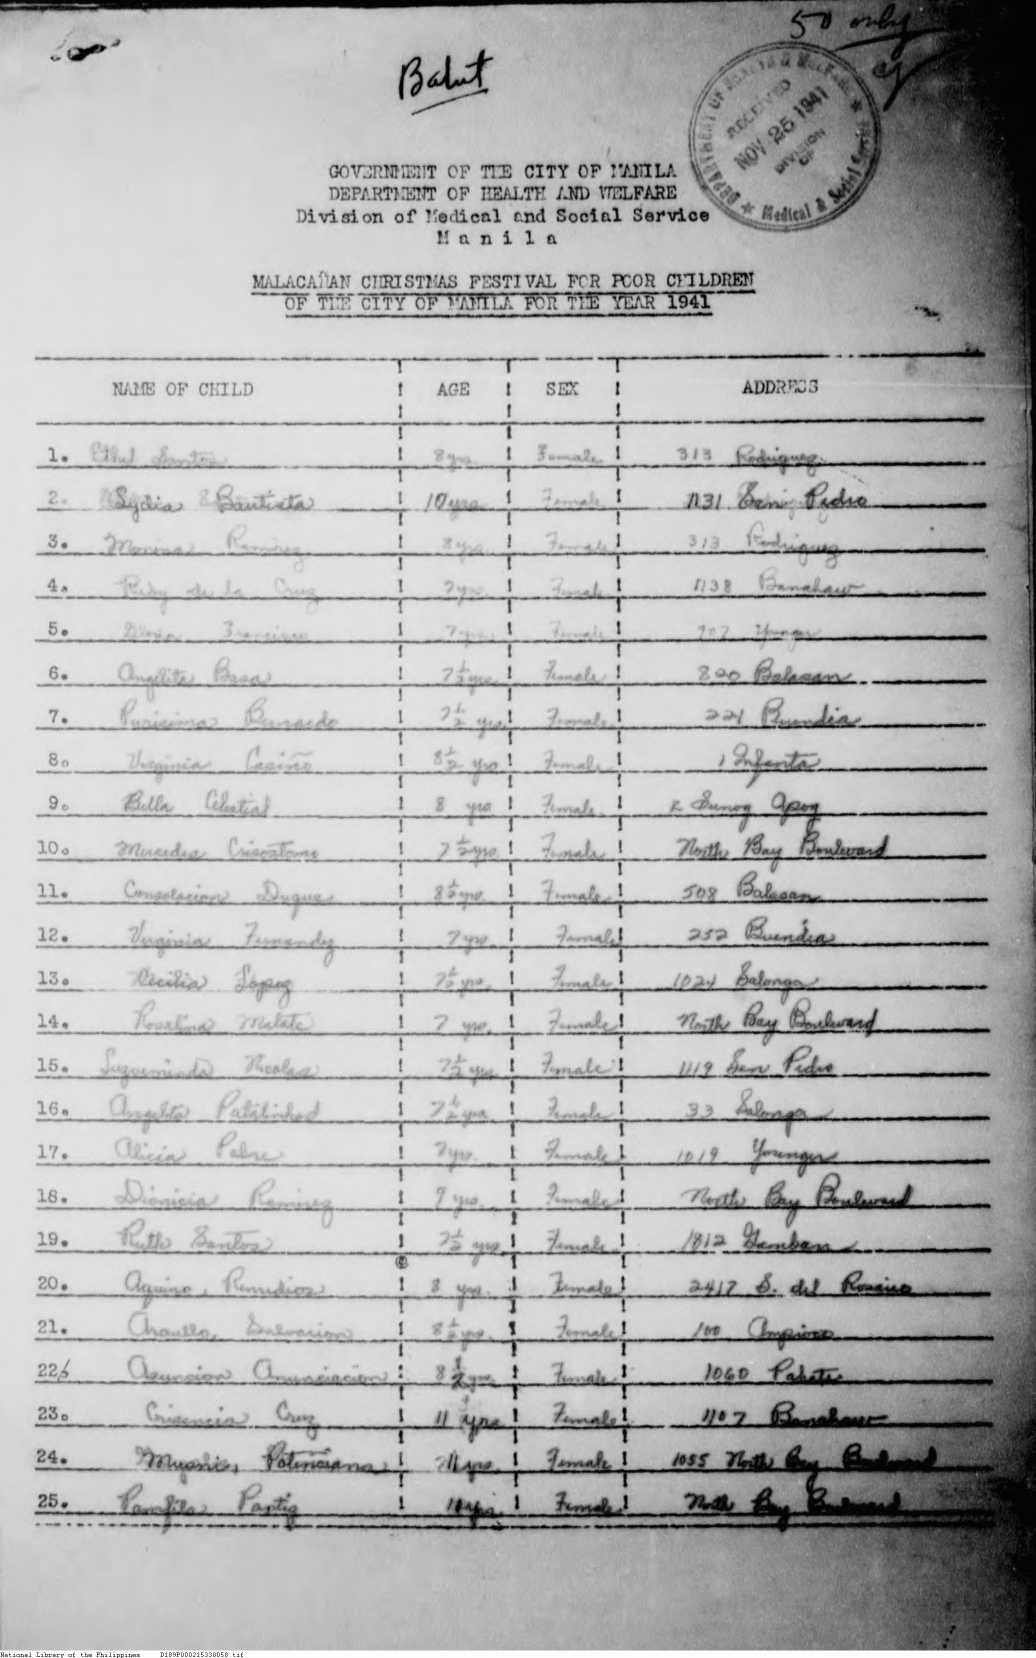 50 only
Balut
DEPARTMENT OF HEALTH & WELFARE
RECEIVED
NOV 25 1941
DIVISION
OF
Medical & Social Service
GOVERNMENT OF THE CITY OF MANILA
DEPARTMENT OF HEALTH AND WELFARE
Division of Medical and Social Service
M a n i l a
MALACAÑAN CHRISTMAS FESTIVAL FOR POOR CHILDREN
OF THE CITY OF MANILA FOR THE YEAR 1941
NAME OF CHILD ! AGE ! SEX ! ADDRESS
1. Ethel Santos 8 yrs. Female 313 Rodriguez
2. Lydia Bautista 10 yrs Female 1131 San Pedro
3. Monina Ramirez 8 yrs Female 313 Rodriguez
4. Ruby de la Cruz 7 yrs. Female 1138 Banahaw
5. Francisco 7 yrs Female 907 Younger
6. Angelita Basa 7 1/2 yrs Female 820 Balasan
7. Purisima Bernardo 7 1/2 yrs Female 221 Buendia
8. Virginia Casiño 8 1/2 yrs Female 1 Infanta
9. Bella Celestial 8 yrs Female 2 Sunog Apog
10. Mercedes Crisostomo 7 1/2 yrs. Female North Bay Boulevard
11. Consolacion Duque 8 1/2 yrs. Female 508 Balasan
12. Virginia Fernandez 7 yrs. Female 252 Buendia
13. Cecilia Lopez 7 1/2 yrs. Female 1024 Salonga
14. Rosalina Malate 7 yrs. Female North Bay Boulevard
15. Luzviminda Nicolas 7 1/2 yrs Female 1119 San Pedro
16. Angelita Patalinhod 7 1/2 yrs Female 33 Salonga
17. Alicia Pabre 7 yrs. Female 1019 Younger
18. Dionicia Ramirez 9 yrs. Female North Bay Boulevard
19. Ruth Santos 7 1/2 yrs Female 1812 Gamban
20. Aquino, Remedios 8 yrs. Female 2417 S. del Rosario
21. Araullo, Salvacion 8 1/2 yrs. Female 100 Ampioco
22. Asuncion Anunciacion 8 1/2 yrs Female 1060 Pakete
23. Crisencia Cruz 11 yrs Female 1107 Banahaw
24. Potenciana 11 yrs. Female 1055 North Bay Boulevard
25. Pamfila Pantig 10 yrs Female North Bay Boulevard
National Library of the Philippines D189P000215338058.tif